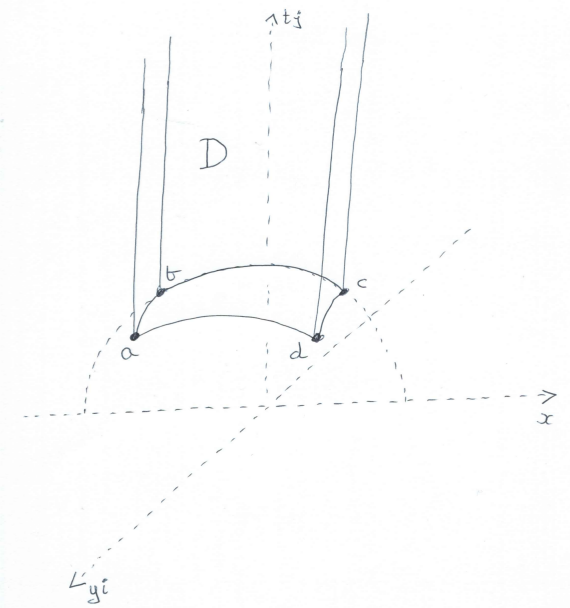 tj
D
b
c
a
d
x
yi